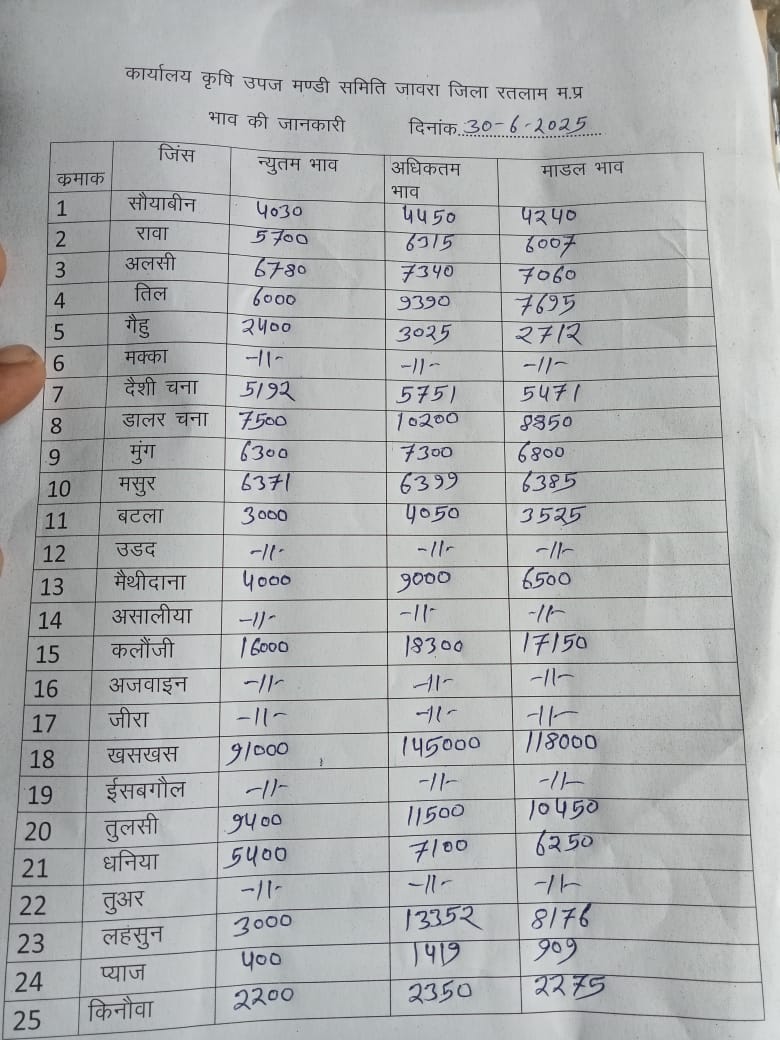 कार्यालय कृषि उपज मण्डी समिति जावरा जिला रतलाम म.प्र
भाव की जानकारी दिनांक..30-6-2025
कमाक जिंस न्युतम भाव अधिकतम भाव माडल भाव
1 सौयाबीन 4030 4450 4240
2 रावा 5700 6315 6007
3 अलसी 6780 7340 7060
4 तिल 6000 9390 7695
5 गैहु 2400 3025 2712
6 मक्का -11- -11- -11-
7 दैशी चना 5192 5751 5471
8 डालर चना 7500 10200 8850
9 मुंग 6300 7300 6800
10 मसुर 6371 6399 6385
11 बटला 3000 4050 3525
12 उडद -11- -11- -11-
13 मैथीदाना 4000 9000 6500
14 असालीया -11- -11- -11-
15 कलौंजी 16000 18300 17150
16 अजवाइन -11- -11- -11-
17 जीरा -11- -11- -11-
18 खसखस 91000 145000 118000
19 ईसबगौल -11- -11- -11-
20 तुलसी 9400 11500 10450
21 धनिया 5400 7100 6250
22 तुअर -11- -11- -11-
23 लहसुन 3000 13352 8176
24 प्याज 400 1419 909
25 किनौवा 2200 2350 2275